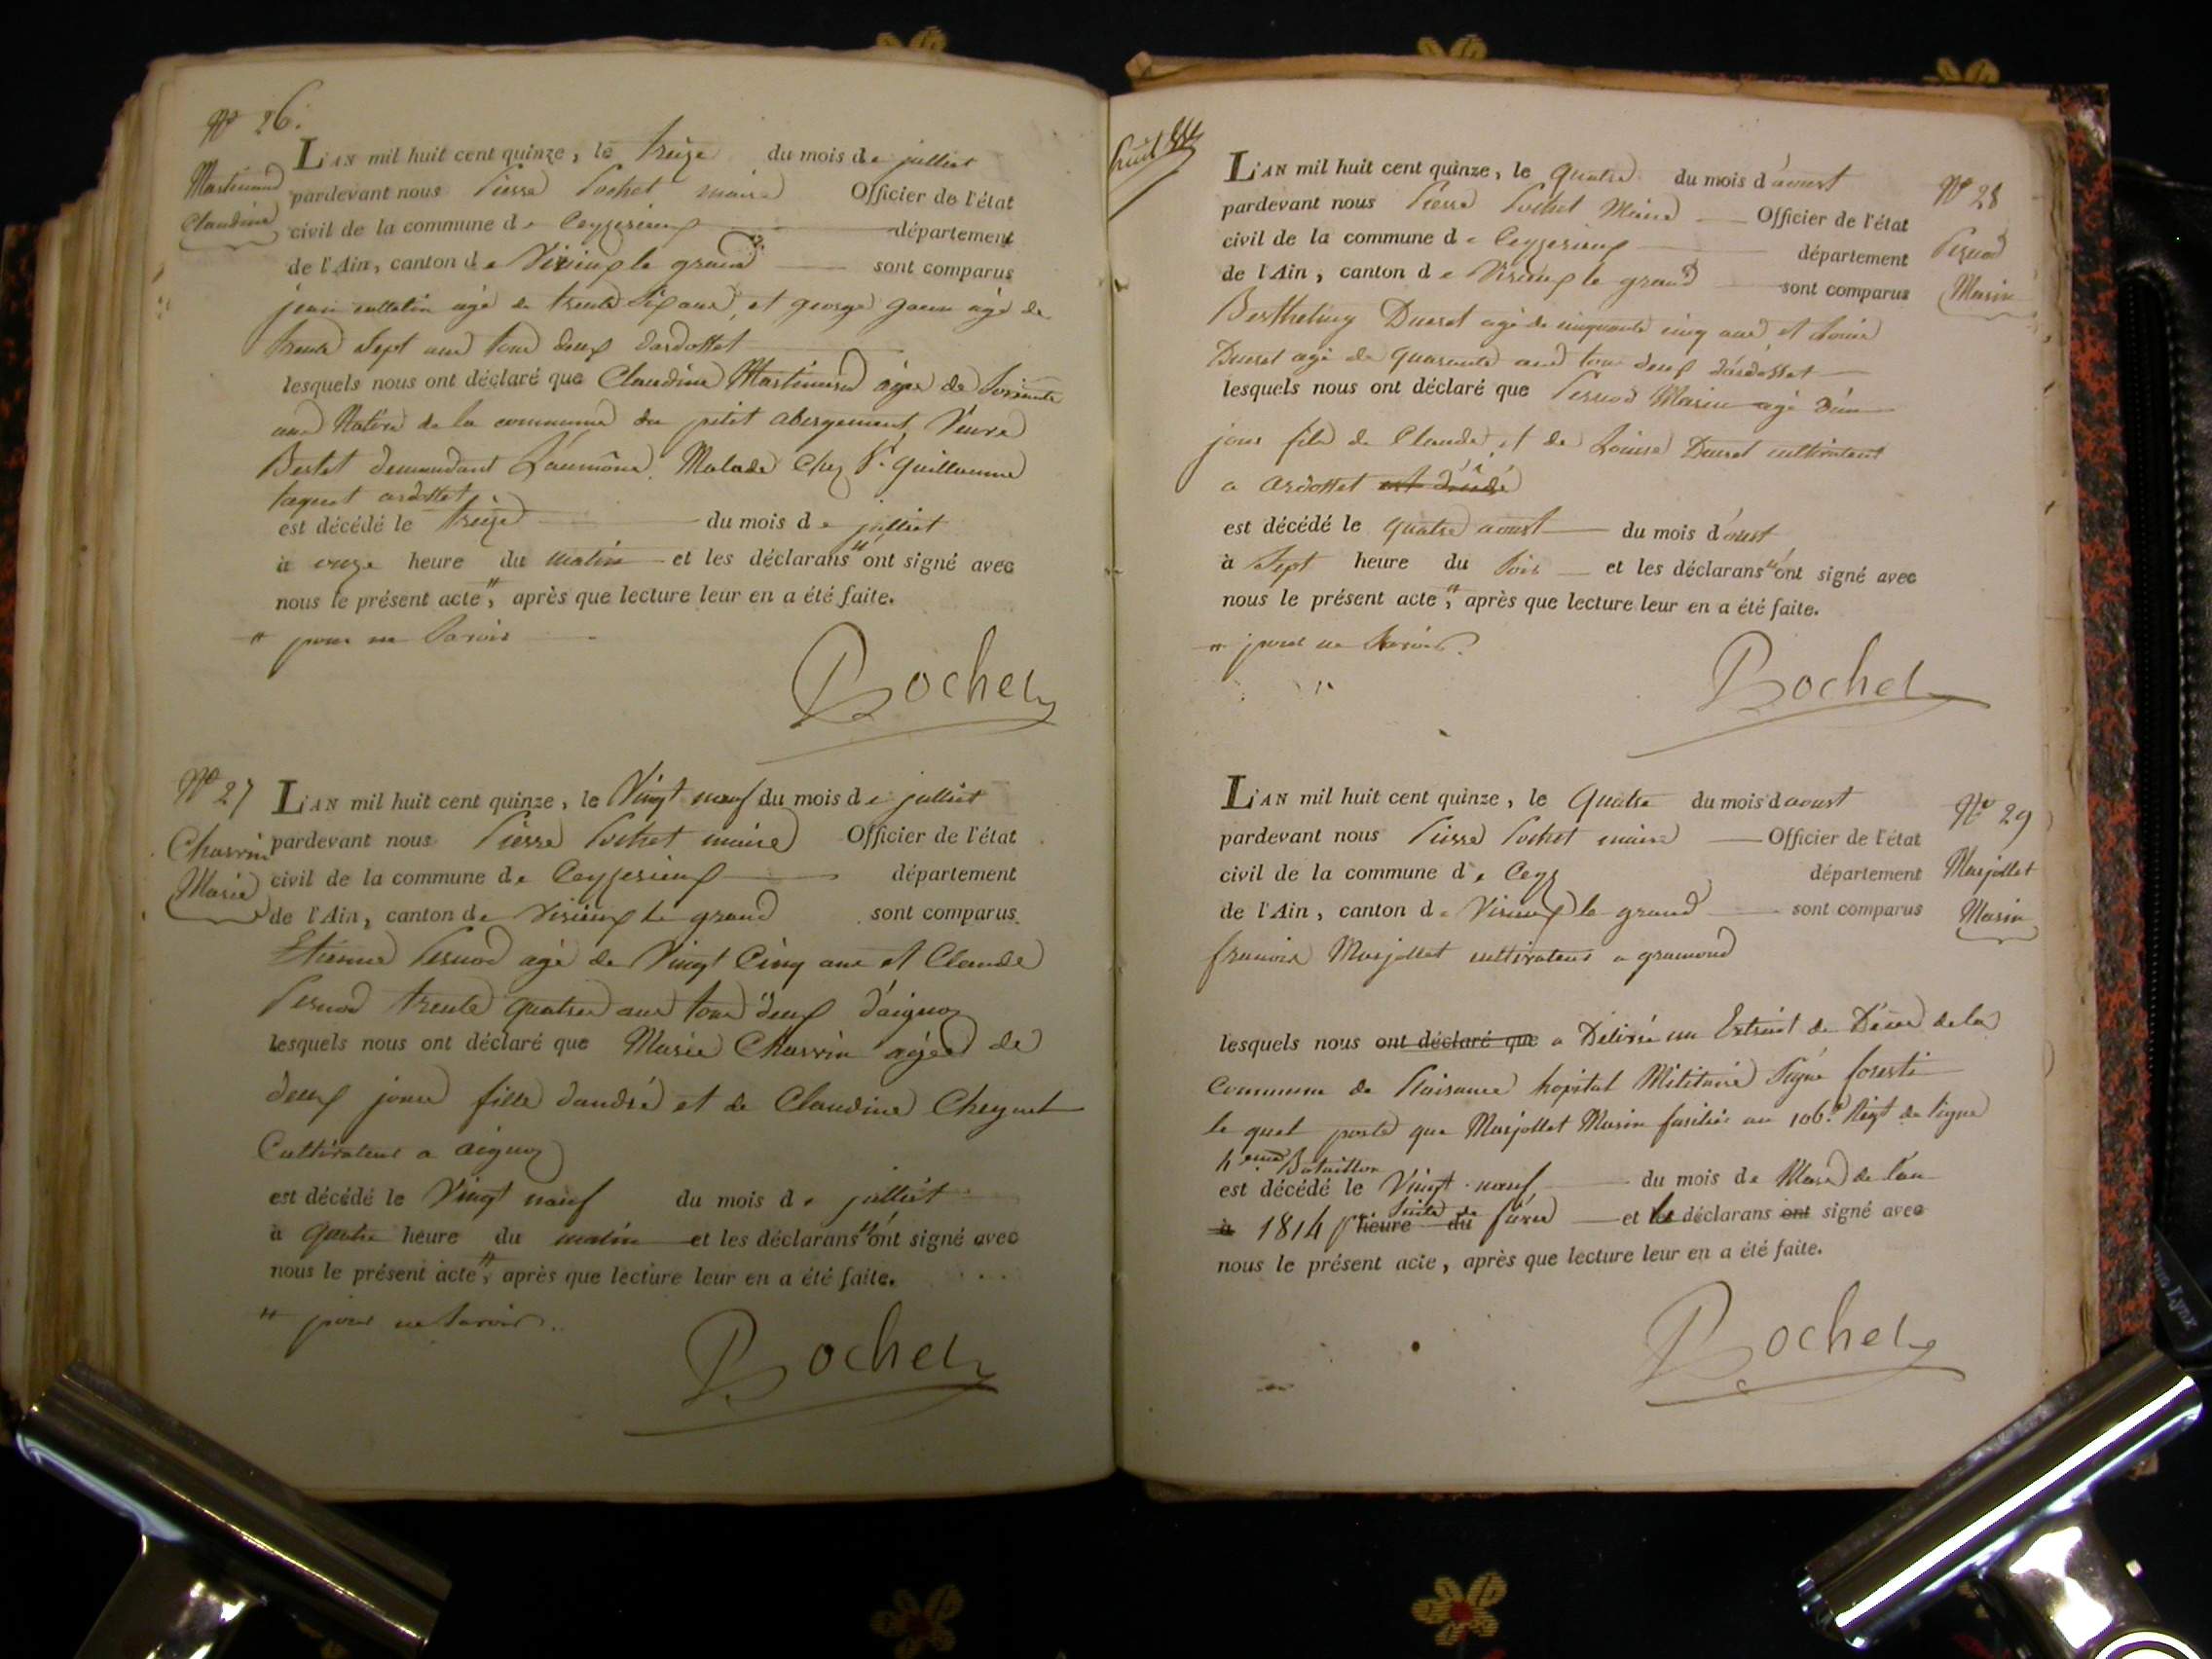 Nº 26.
Martinand
Claudine
L'AN mil huit cent quinze, le treize du mois de julliet
pardevant nous Pierre Pochet maire Officier de l'état
civil de la commune de Ceyzerieux département
de l'Ain, canton de Virieux le grand sont comparus
jean agé de trente six ans, et george goux agé de
trente sept ans tous deux dardosset
lesquels nous ont déclaré que Claudine Martinand agée de soixante
ans Native de la commune du petit abergement Veuve
Bertet demandant L'aumône Malade Chez Sr. guillaume
ardosset
est décédé le treize du mois de julliet
à onze heure du matin et les déclarans " ont signé avec
nous le présent acte ", après que lecture leur en a été faite.
" pour ne savoir
Pochet
Nº 27
Charvin
Marie
L'AN mil huit cent quinze, le Vingt neuf du mois de julliet
pardevant nous Pierre Pochet maire Officier de l'état
civil de la commune de Ceyzerieux département
de l'Ain, canton de Virieux le grand sont comparus
Etienne Pernod agé de Vingt Cinq ans et Claude
Pernod trente quatre ans tous deux d'aignoz
lesquels nous ont déclaré que Marie Charvin agée de
deux jours fille dandré et de Claudine Cheynet
Cultivateur a aignoz
est décédé le Vingt neuf du mois de julliet
à quatre heure du matin et les déclarans " ont signé avec
nous le présent acte ", après que lecture leur en a été faite.
" pour ne savoir.
Pochet
huit
L'AN mil huit cent quinze, le quatre du mois d'aoust
pardevant nous Pierre Pochet Maire Officier de l'état
civil de la commune de Ceyzerieux département
de l'Ain, canton de Virieux le grand sont comparus
Nº 28
Pernod
Marin
Berthelmy Ducret agé de cinquante cinq ans et Louis
Ducret agé de quarante ans tous deux d'ardosset
lesquels nous ont déclaré que Pernod Marin agé d'un
jour fils de Claude et de Louise Ducret cultivateur
a ardosset est décédé
est décédé le quatre aoust du mois d'oust
à Sept heure du soir et les déclarans " ont signé avec
nous le présent acte ", après que lecture leur en a été faite.
" pour ne savoir.
Pochet
L'AN mil huit cent quinze, le Quatre du mois daoust
pardevant nous Pierre Pochet maire Officier de l'état
civil de la commune de Ceyz département
de l'Ain, canton de Virieux le grand sont comparus
Nº 29
Marjollet
Marin
francois Marjollet cultivateur a gramond
lesquels nous ont déclaré que a Délivré un Extrait de Décès de la
Commune de Plaisance hopital Militaire Signé foresti
le quel porte que Marjollet Marin fusilier au 106.e Régt de ligne
4eme Bataillon
est décédé le Vingt neuf du mois de Mars de l'an
à 1814 par suite de heure du fièvre et les déclarans ont signé avec
nous le présent acte, après que lecture leur en a été faite.
Pochet